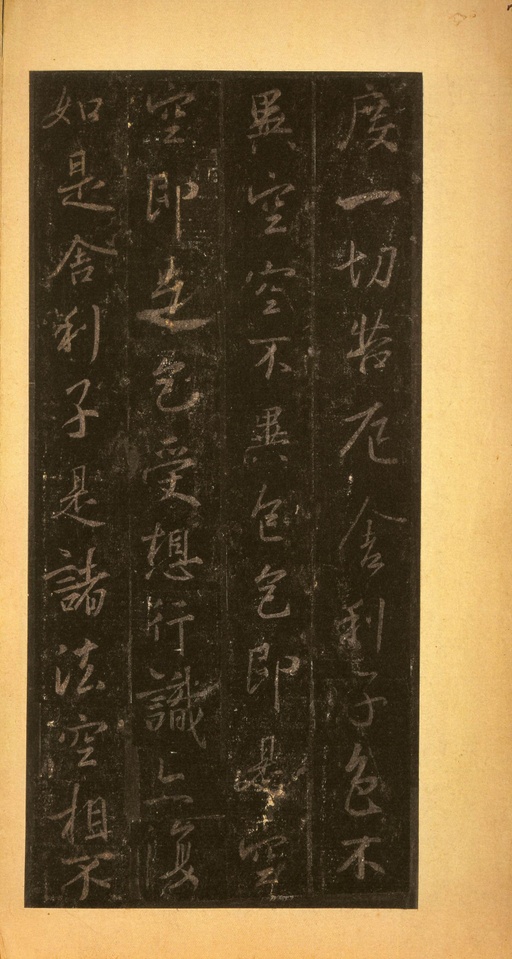 度一切苦厄舍利子色不
異空空不異色色即是空
空即是色受想行識亦復
如是舍利子是諸法空相不